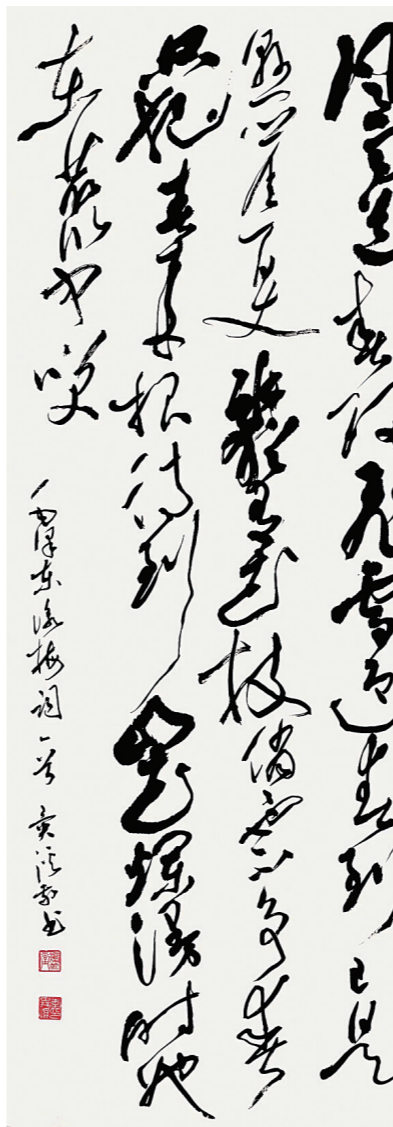 风雨送春归飞雪迎春到已是
懸崖百丈冰猶有花枝俏也不争春
只把春来报待到山花烂漫时她
在丛中笑
毛泽东咏梅词一首